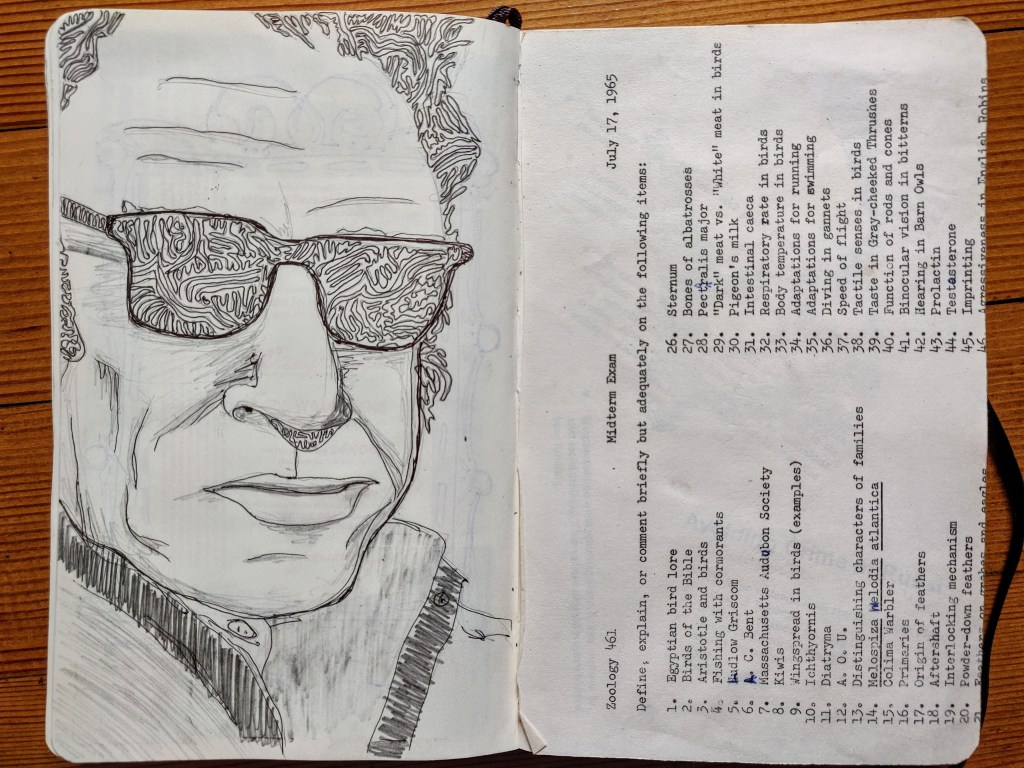 Zoology 461 Midterm Exam July 17, 1965
Define, explain, or comment briefly but adequately on the following items:
1. Egyptian bird lore
2. Birds of the Bible
3. Aristotle and birds
4. Fishing with cormorants
5. Ludlow Griscom
6. A. C. Bent
7. Massachusetts Audubon Society
8. Kiwis
9. Wingspread in birds (examples)
10. Ichthyornis
11. Diatryma
12. A. O. U.
13. Distinguishing characters of families
14. Melospiza melodia atlantica
15. Colima Warbler
16. Primaries
17. Origin of feathers
18. Aftershaft
19. Interlocking mechanism
20. Powder-down feathers
21. Feathers on grebes and eagles
26. Sternum
27. Bones of albatrosses
28. Pectoralis major
29. "Dark" meat vs. "White" meat in birds
30. Pigeon's milk
31. Intestinal caeca
32. Respiratory rate in birds
33. Body temperature in birds
34. Adaptations for running
35. Adaptations for swimming
36. Diving in gannets
37. Speed of flight
38. Tactile senses in birds
39. Taste in Gray-cheeked Thrushes
40. Function of rods and cones
41. Binocular vision in bitterns
42. Hearing in Barn Owls
43. Prolactin
44. Testosterone
45. Imprinting
46. Aggressiveness in English Robins